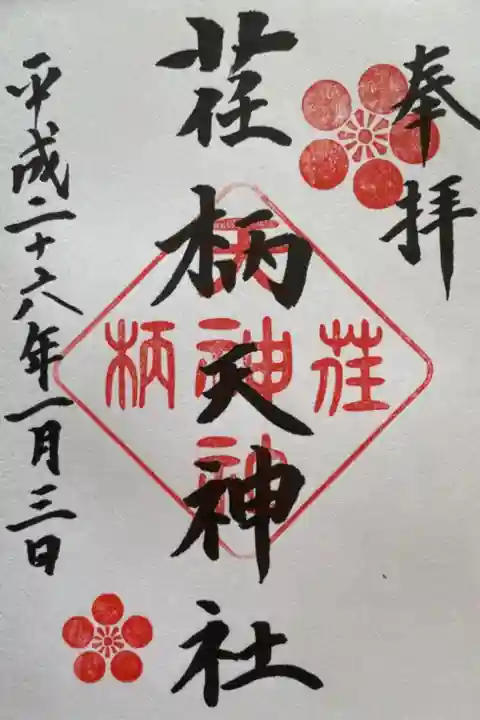 奉拝
荏柄天神社
荏
天神社
柄
平成二十六年一月三日